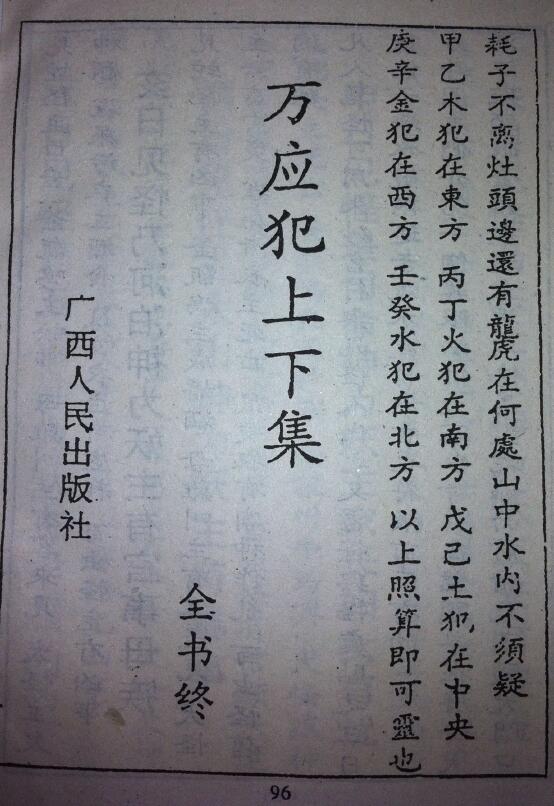 耗子不离灶頭邊還有龍虎在何處山中水内不須疑
甲乙木犯在東方 丙丁火犯在南方 戊己土犯在中央
庚辛金犯在西方 壬癸水犯在北方 以上照算即可靈也
万应犯上下集
全书终
广西人民出版社
96